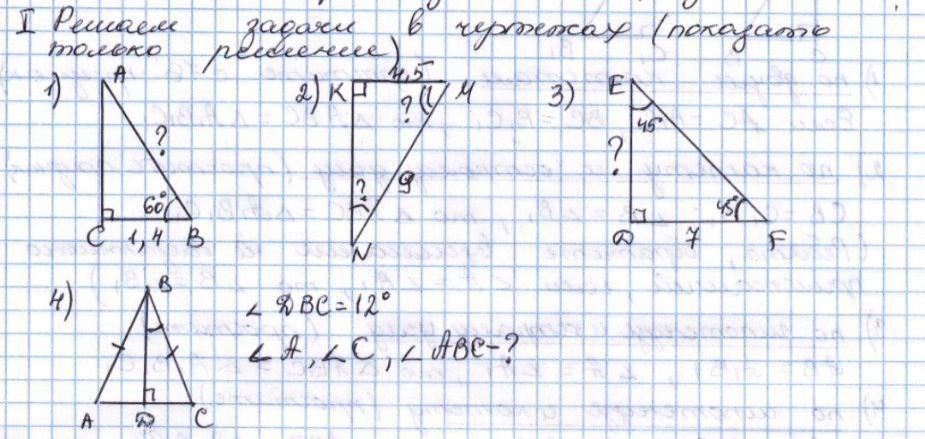 I Решаем задачи в чертежах (показать
только решение)
1) A ? 60° C 1,4 B
2) K 4,5 M ? ? 9 N
3) E 45 ? 45° D 7 F
4) B A D C
∠ DBC = 12°
∠ A, ∠ C, ∠ ABC - ?